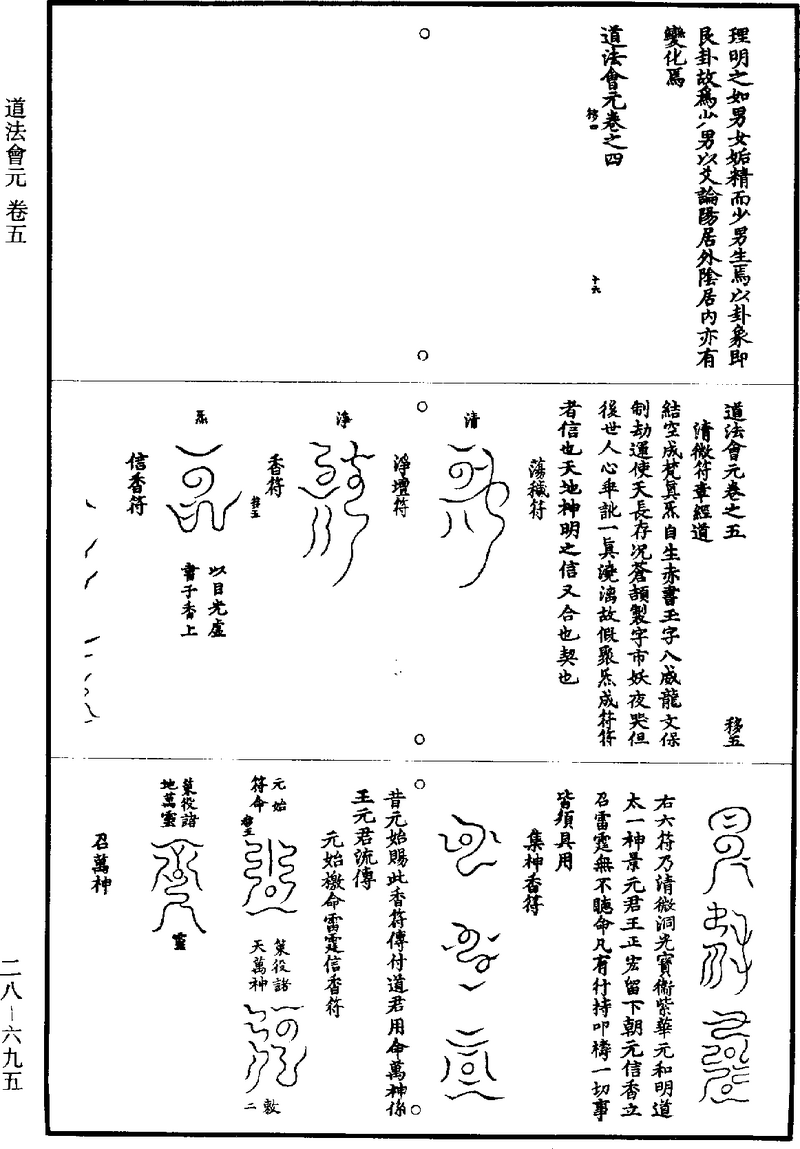 道法會元 卷五
二八—六九五
理明之如男女姤精而少男生焉以卦象即
艮卦故爲少男以爻論陽居外陰居內亦有
變化焉
道法會元卷之四
移四
十六
道法會元卷之五
移五
清微符章經道
結空成梵真炁自生赤書玉字八威龍文保
制劫運使天長存况蒼頡製字市妖夜哭但
後世人心乖訛一真澆漓故假聚炁成符符
者信也天地神明之信又合也契也
蕩穢符
清
淨壇符
淨
香符
移五
炁
以目光虛
書于香上
信香符
右六符乃清微洞光寶衞紫華元和明道
太一神景元君王正宏留下朝元信香立
召雷霆無不聽命凡有行持叩禱一切事
皆須具用
集神香符
昔元始賜此香符傳付道君用命萬神係
王元君流傳
元始檄命雷霆信香符
元始
符命
移五
策役諸
天萬神
敕
二
策役諸
地萬靈
靈
召萬神